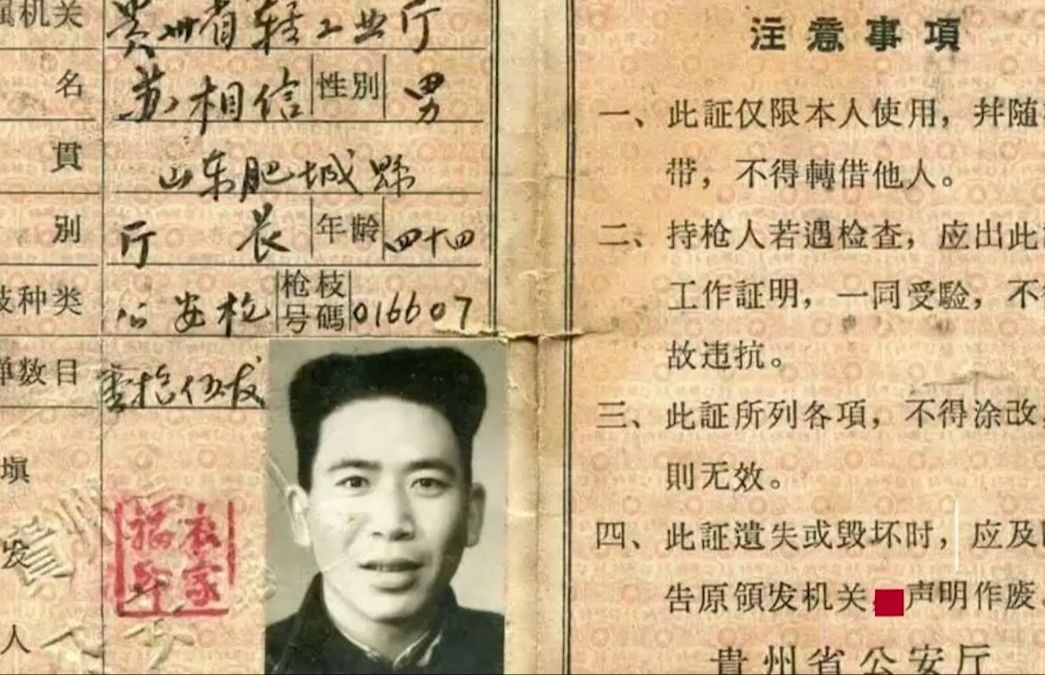 属机关 贵州省轻工业厅
名 苏相信 性别 男
貫 山东肥城縣
别 厅长 年龄 四十四
枝种类 公安枪 枪枝号碼 016607
弹数目 壹拾伍发
填
发
人
注意事項
一、此証仅限本人使用，拌随
带，不得轉借他人。
二、持枪人若遇检查，应出此
工作証明，一同受驗，不
故违抗。
三、此証所列各項，不得涂改，
則无效。
四、此証遺失或毁坏时，应及
告原領发机关 声明作废。
貴州省公安厅